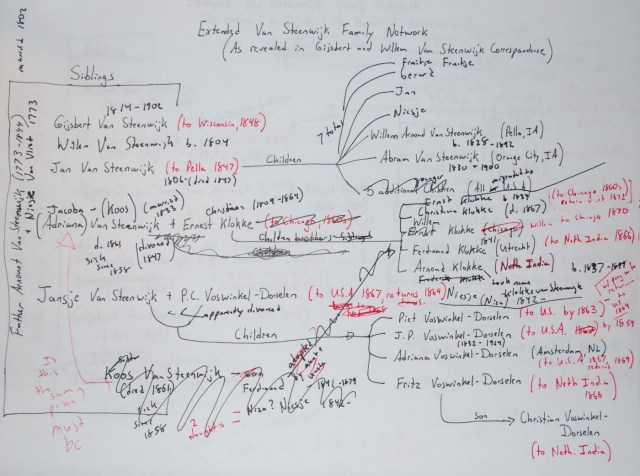 Extended Van Steenwijk Family Network
(As revealed in Gijsbert and Willem Van Steenwijk Correspondence)
Siblings
married 1802
Father Arnout Van Steenwijk (1773-1844)
+ Niesje Van Vliet 1773
1814-1902
Gijsbert Van Steenwijk (to Wisconsin, 1848)
Willem Van Steenwijk b. 1804
Jan Van Steenwijk (to Pella 1847)
1806- (died 1847)
Children
7 total
Fruitje Fruitje
Gerrit
Jan
Niesje
Willem Arnoud Van Steenwijk (Pella, IA)
b. 1828-1892
Abram Van Steenwijk (Orange City, IA)
1830-1900
5 additional children (All migrated to
younger
Jacoba - (Koos) (married 1833)
(Adriana) Van Steenwijk + Ernest Klokke (to Chicago, 1860s)
Christian (1809-1864)
d. 1861
sick since 1858
(divorced 1847)
Children
Ernest Klokke b. 1834
(to Chicago, 1860s)
Christiaan Klokke (d. 1867)
Willem
Ernst Klokke (Chicago) Willem to Chicago 1870
Ferdinand Klokke (Utrecht) (to Neth. India 1866)
1841
Arnoud Klokke (Neth India) b. 1837-1899
Niesje
(Nizo) 1842-
took name
Klokke van Steenwijk
Jansje Van Steenwijk + P.C. Voswinkel-Dorselen (to U.S.A 1867, returns 1869)
apparently divorced
Children
Piet Voswinkel-Dorselen (to U.S. by 1863)
J.P. Voswinkel-Dorselen (to U.S.A. by 1859)
(1832-1924)
Adriana Voswinkel-Dorselen (Amsterdam, NL)
(to U.S.A 1867
returns 1869)
Fritz Voswinkel-Dorselen (to Neth India
1866)
son
Christian Voswinkel-
Dorselen
(to Neth. India)
Koos Van Steenwijk - son
(died 1861)
sick since 1858
Ferdinand 1841-1879
2 daughters = Nizo? Niesje 1842-
adopted by
Is this the same person?
must be